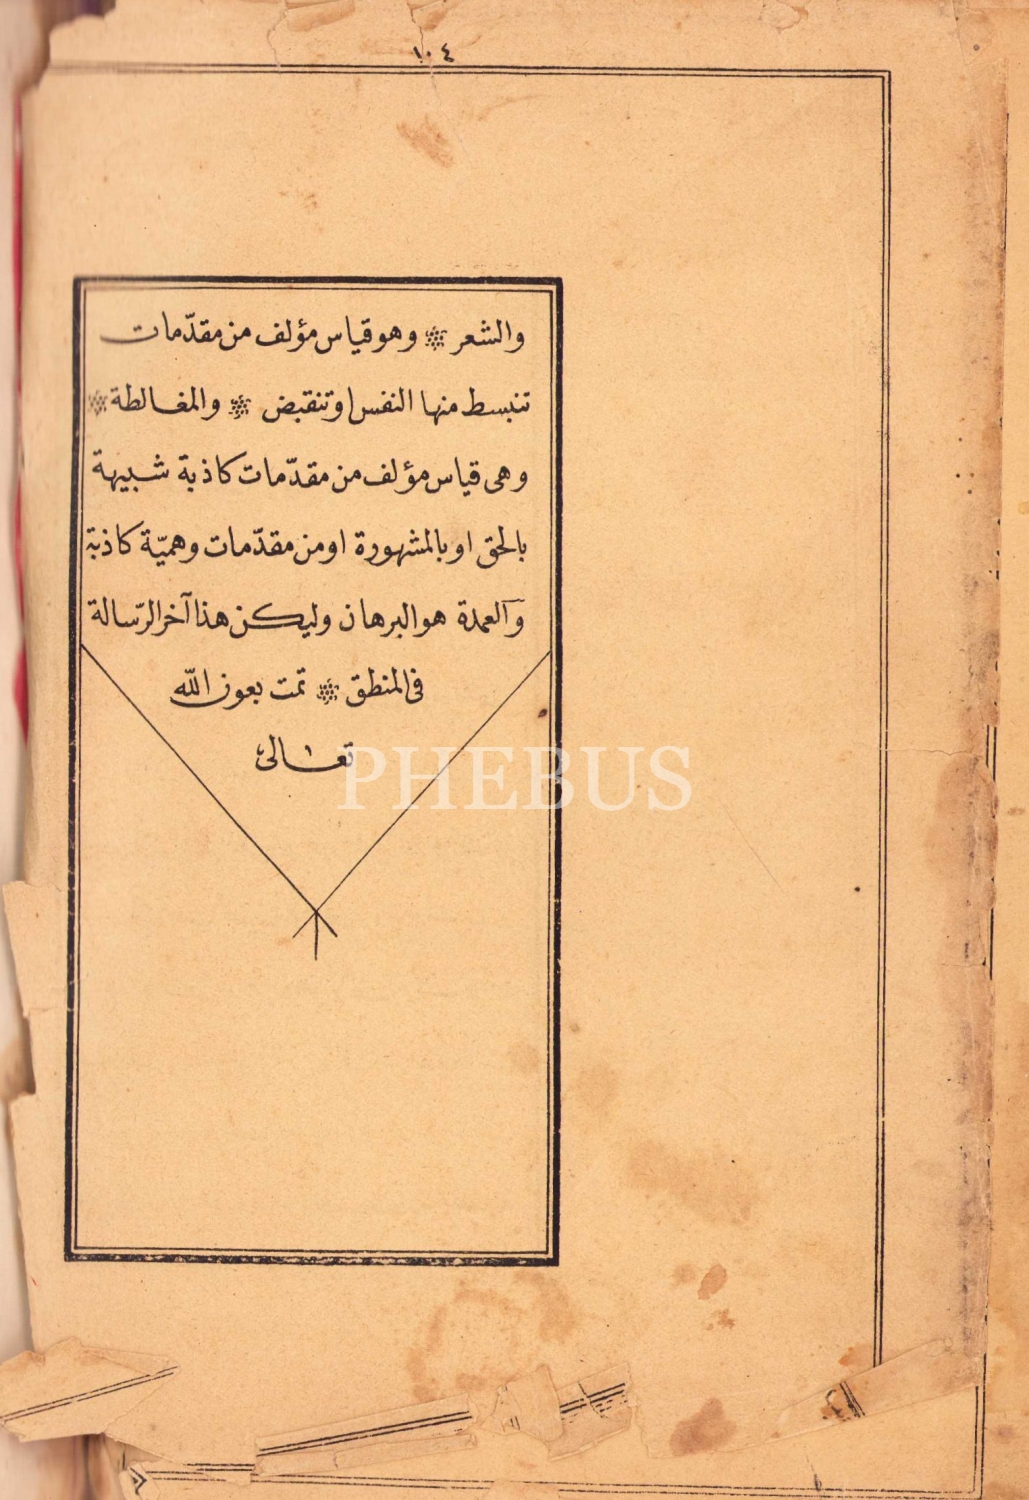 ١٠٤
والشعر ❊ وهو قياس مؤلف من مقدّمات
تنبسط منها النفس او تنقبض ❊ والمغالطة ❊
وهى قياس مؤلف من مقدّمات كاذبة شبيهة
بالحق او بالمشهورة او من مقدّمات وهميّة كاذبة
والعمدة هو البرهان وليكن هذا آخر الرّسالة
فى المنطق ❊ تمت بعون اللّه
تعالى
PHEBUS